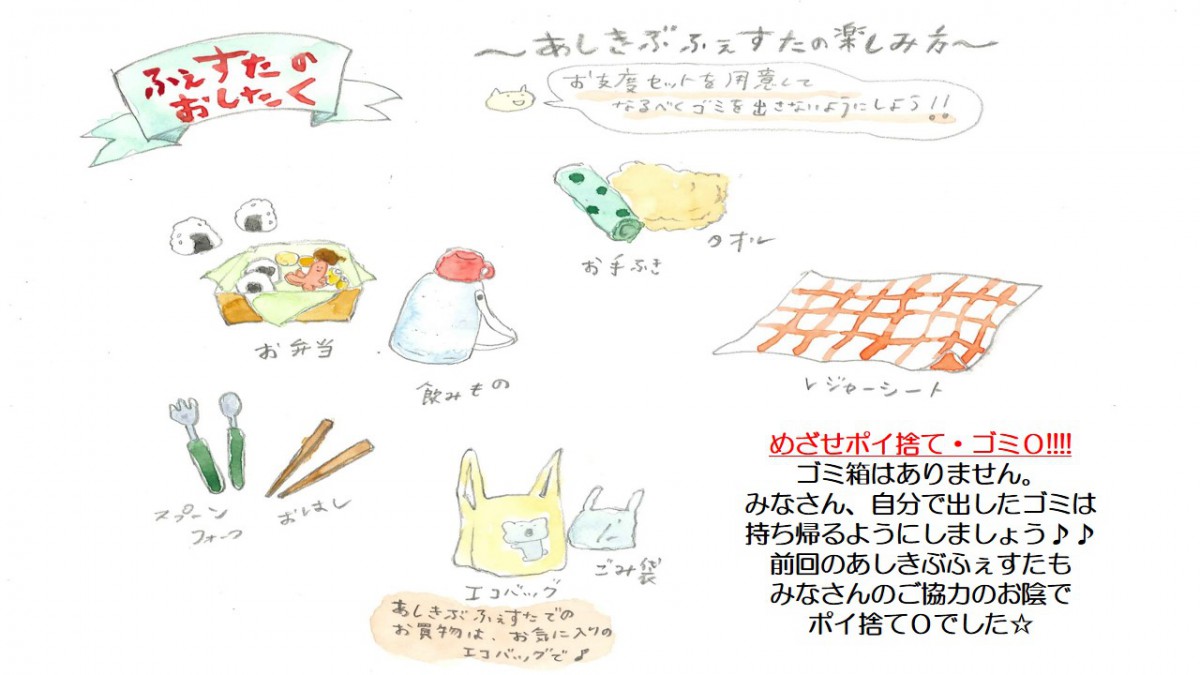 ふぇすたの
おしたく
～あしきぶふぇすたの楽しみ方～
お支度セットを用意して
なるべくゴミを出さないようにしよう!!
タオル
お手ふき
お弁当
飲みもの
レジャーシート
スプーン
フォーク
おはし
エコバッグ
ごみ袋
あしきぶふぇすたでの
お買物は、お気に入りの
エコバッグで♪
めざせポイ捨て・ゴミ０!!!!
ゴミ箱はありません。
みなさん、自分で出したゴミは
持ち帰るようにしましょう♪♪
前回のあしきぶふぇすたも
みなさんのご協力のお陰で
ポイ捨て０でした☆